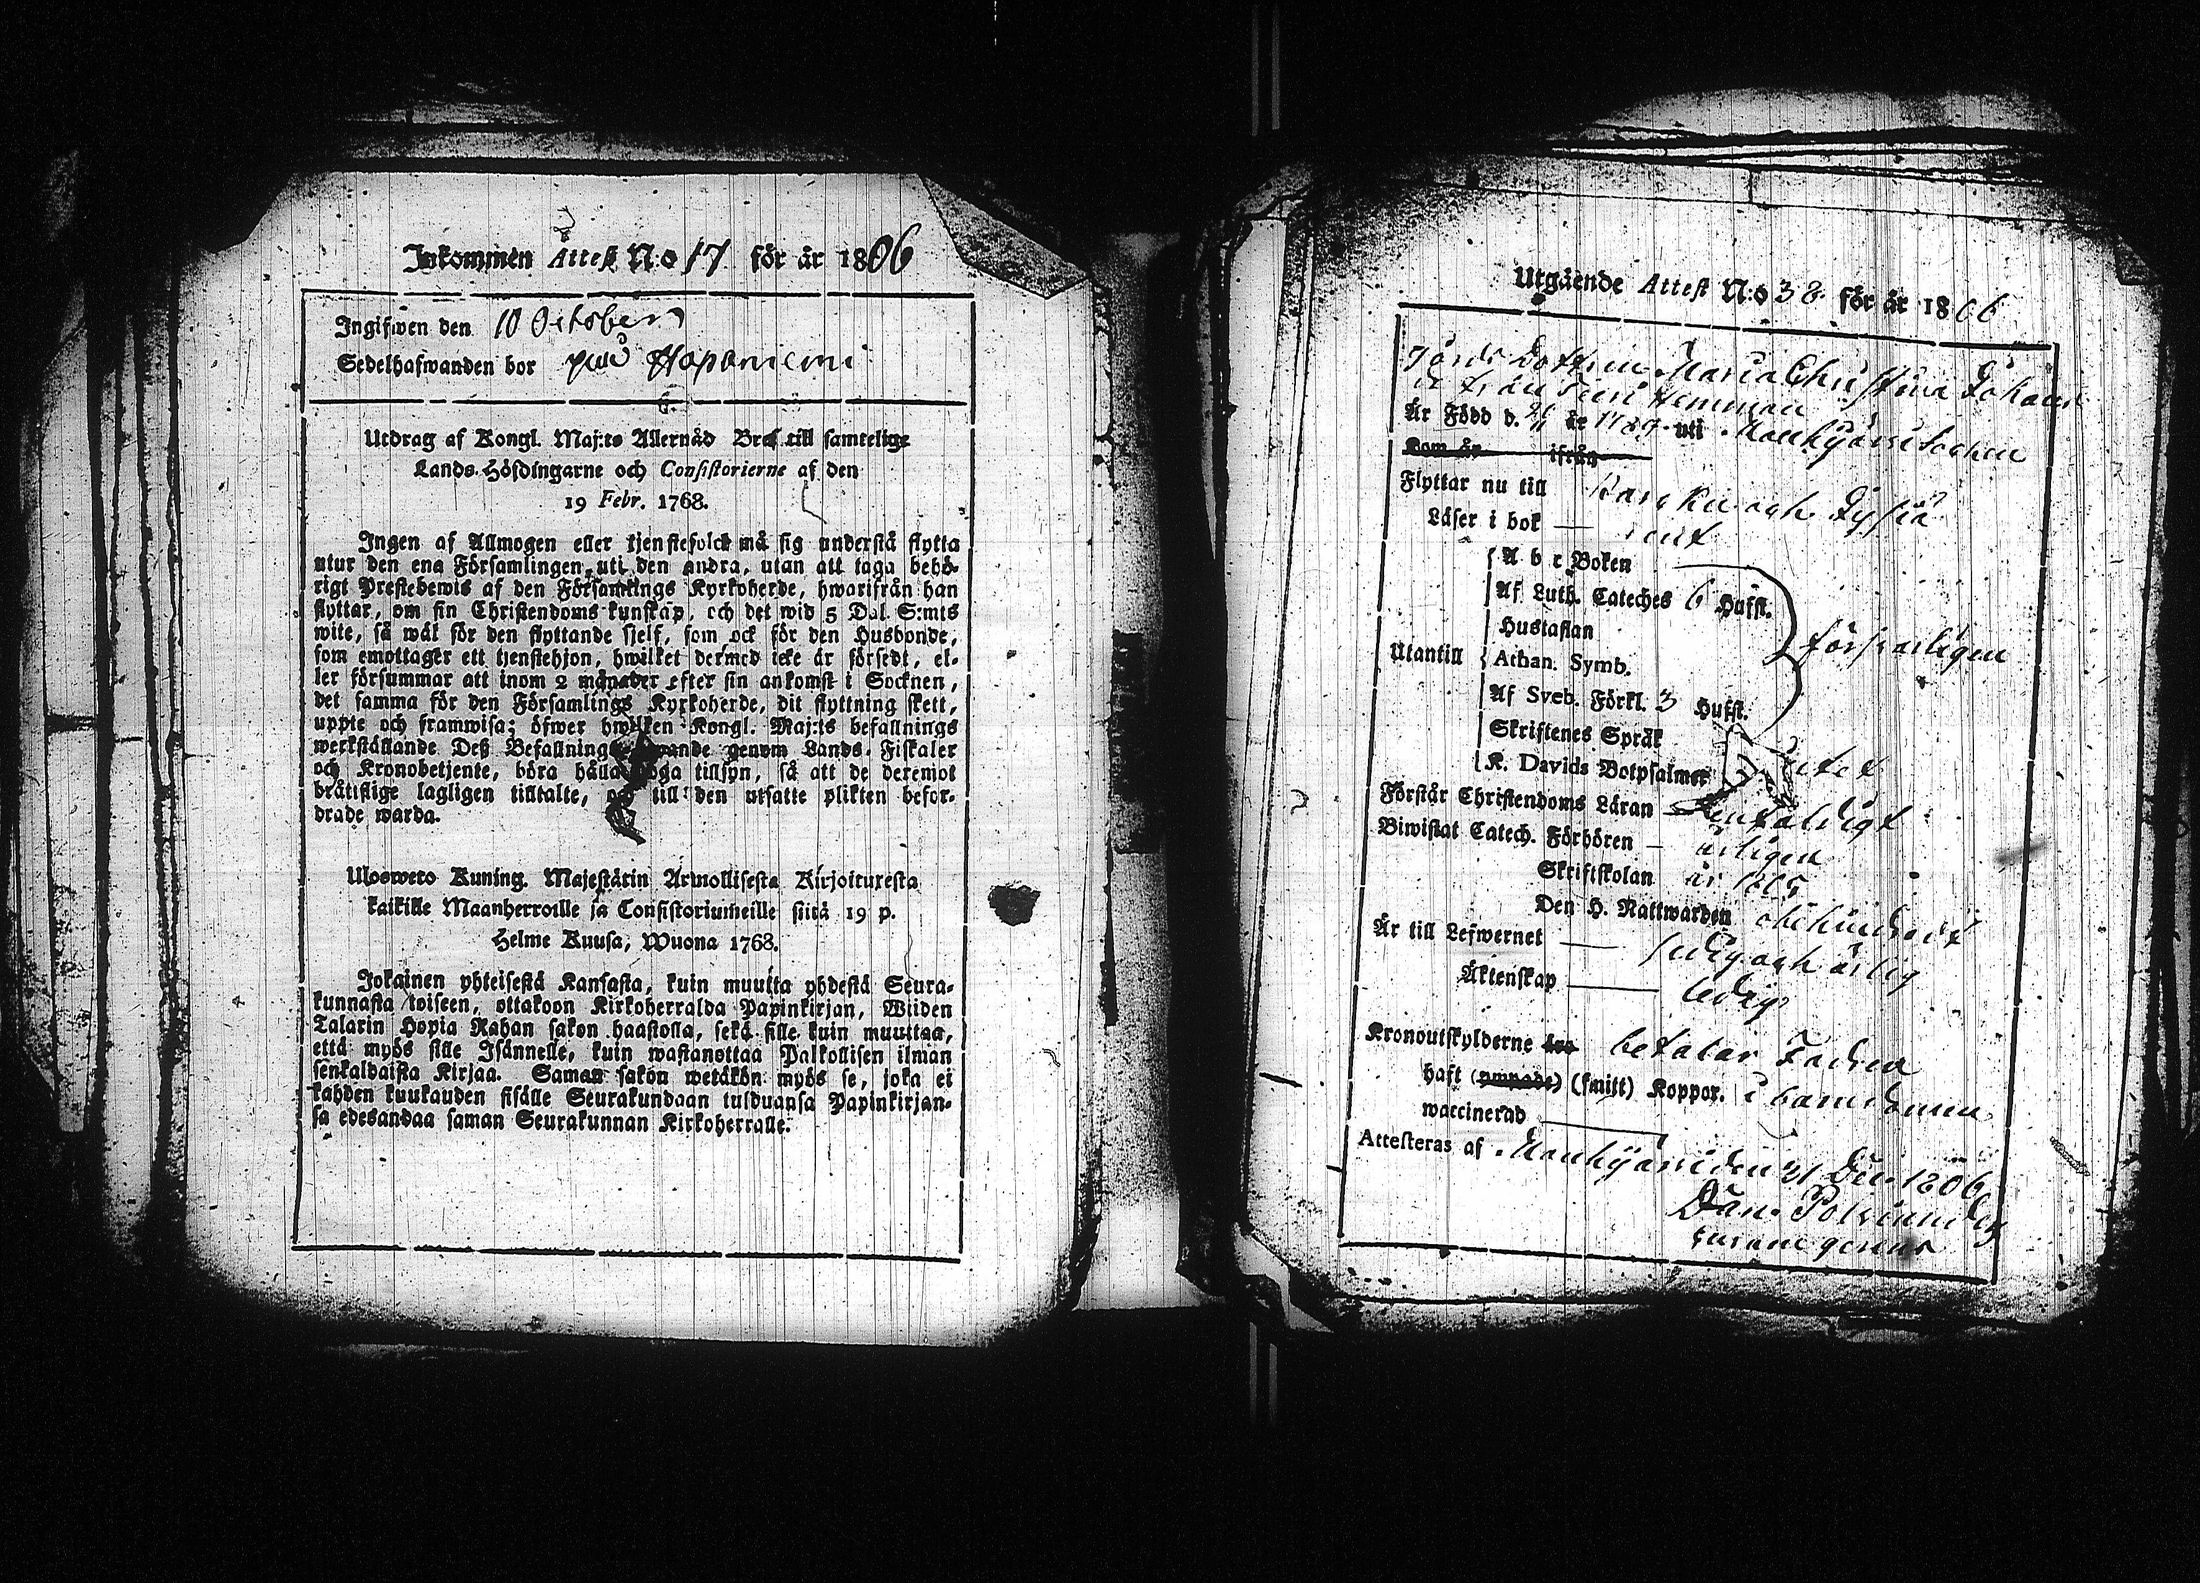 Inkommen Attest N:o 17 för år 1806
Ingifwen den 10 October
Sedelhafwanden bor på Haponiemi
Utdrag af Kongl. Maj:ts Allernåd Bref till samtelige
Lands-Höfdingarne och Consistorierne af den
19 Febr. 1768.
Ingen af Allmogen eller tjenstefolck må sig understå flytta
utur den ena Församlingen uti den andra, utan att taga behö-
rigt Prestebewis af den Församlings Kyrkoherde, hwarifrån han
flyttar, om sin Christendoms kunskap, och det wid 5 Dal. S:mts
wite, så wäl för den flyttande sjelf, som ock för den Husbonde,
som emottager ett tjenstehjon, hwilket dermed icke är försedt, el-
ler försummar att inom 2 månader efter sin ankomst i Socknen,
det samma för den Församlings Kyrkoherde, dit flyttning skett,
uppte och framwisa; öfwer hwilken Kongl. Maj:ts befallnings
werkställande Deß Befallningshafwande genom Lands-Fiskaler
och Kronobetjente, böra hålla noga tillsyn, så att de deremot
bråttslige lagligen tilltalte, och till den utsatte plikten befor-
drade warda.
Ulosweto Kuning. Majestärin Armollisesta Kirjoituxesta
kaikille Maanherroille ja Consistoriumeille siitä 19 p.
Helme Kuusa, Wuona 1768.
Jokainen yhteisestä Kansasta, kuin muutta yhdestä Seura-
kunnasta toiseen, ottakoon Kirkoherralda Papinkirjan, Wiiden
Talarin Hopia Rahan sakon haastolla, sekä sille kuin muuttaa,
että myös sille Isännelle, kuin wastanottaa Palkollisen ilman
senkaldaista Kirjaa. Saman sakon wetäkön myös se, joka ei
kahden kuukauden sisälle Seurakundaan tulduansa Papinkirjan-
sa edesandaa saman Seurakunnan Kirkoherralle.
Utgående Attest N:o 38 för år 1806
Jords Dottren Maria Christina Johans
Hemman
Är Född d. år 1789 uti Mouhijärvi Socken
Kom år ifrån
Flyttar nu till Karcku och
Läser i bok — rent
A b c Boken
Af Luth. Cateches 6 Hufst.
Hustaflan
Utantill Athan. Symb. försvarligen
Af Sveb. Förkl. 3 Hufst.
Skriftenes Språk
K. Davids Botpsalmer
Förstår Christendoms Läran — Enfaldigt
Biwistat Catech. Förhören — årligen
Skriftskolan år 1805
Den H. Nattwarden obehindrat
Är till Lefwernet — sedig och ärlig
Äktenskap — ledig
Kronoutskylderne betalar Fadren
haft (ympade) (smitt) Koppor. i barndomen
waccinerad
Attesteras af Mouhijärvi den 31 Dec. 1806